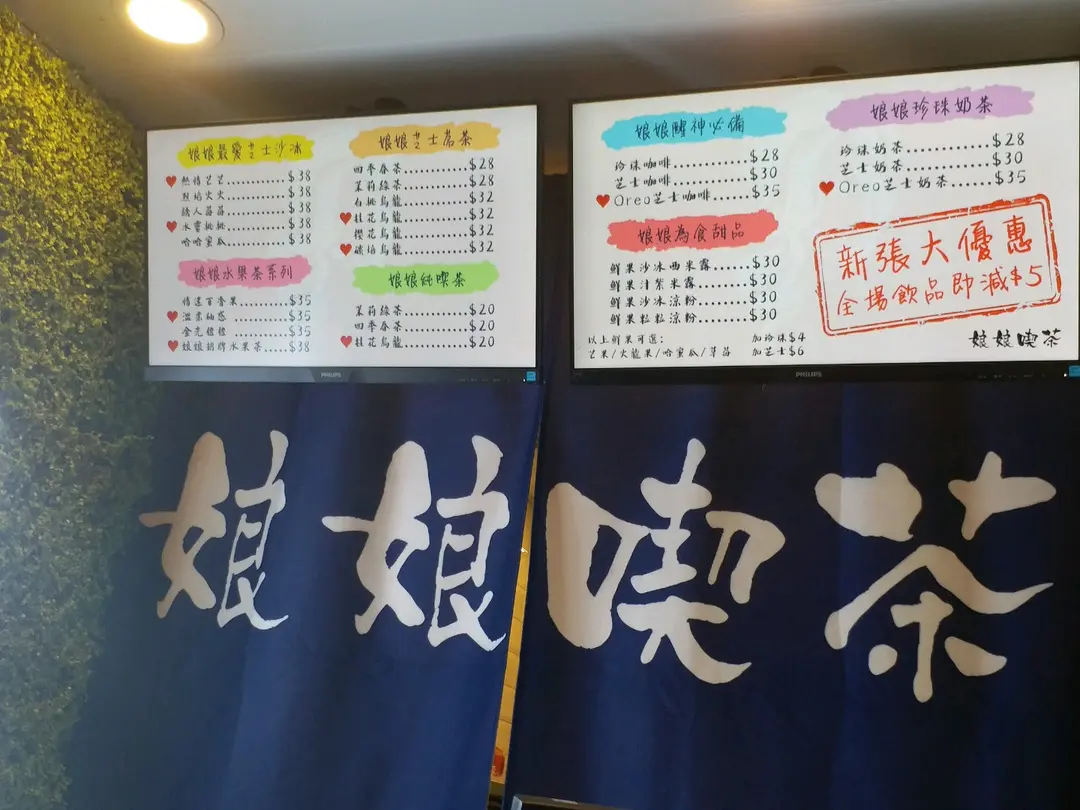 娘娘最愛芝士沙冰
熱情芝芝............$38
烈焰火火............$38
誘人莓莓............$38
水蜜桃桃............$38
哈哈蜜瓜............$38
娘娘水果茶系列
情還百香果............$35
溫柔柚惑............$35
金光橙橙............$35
娘娘招牌水果茶....$38
娘娘芝士茗茶
四季春茶............$28
茉莉綠茶............$28
白桃烏龍............$32
桂花烏龍............$32
櫻花烏龍............$32
碳焙烏龍............$32
娘娘純喫茶
茉莉綠茶............$20
四季春茶............$20
桂花烏龍............$20
PHILIPS
娘娘醒神必備
珍珠咖啡............$28
芝士咖啡............$30
Oreo芝士咖啡......$35
娘娘為食甜品
鮮果沙冰西米露.......$30
鮮果汁紫米露.......$30
鮮果沙冰涼粉.......$30
鮮果粒粒涼粉.......$30
以上鮮果可選:
芒果/火龍果/哈蜜瓜/草莓
加珍珠$4
加芝士$6
娘娘珍珠奶茶
珍珠奶茶............$28
芝士奶茶............$30
Oreo芝士奶茶......$35
新張大優惠
全場飲品即減$5
娘娘喫茶
PHILIPS
娘娘喫茶